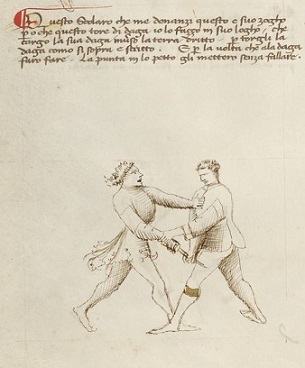 Questo Scolaro che me denanzi questo e suo zogho
p o che questo tore di daga io lo fazo in suo logho, che
torzo la sua daga inuerso la terra dritto p torgli la
daga como si sopra e scritto. E p la volta che ala daga
faro fare. La punta in lo petto gli mettero senza fallare.